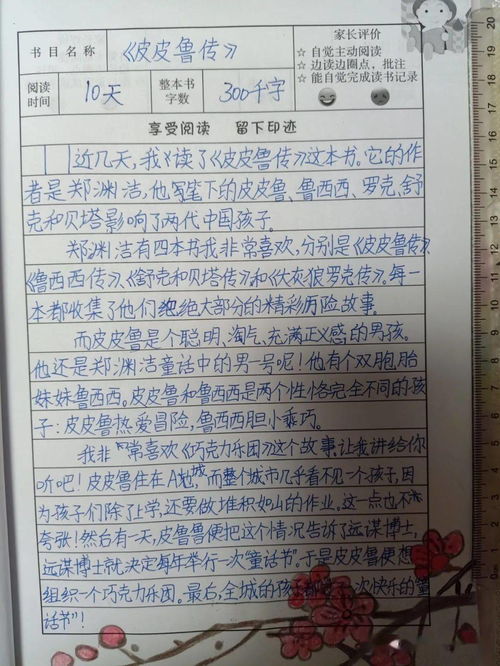 书目名称 《皮皮鲁传》
家长评价
☆ 自觉主动阅读
☆ 边读边圈点,批注
☆ 能自觉完成读书记录
阅读时间 10天 整本书字数 300千字
享受阅读 留下印迹
近几天,我读了《皮皮鲁传》这本书。它的作
者是郑渊洁,他写笔下的皮皮鲁、鲁西西、罗克、舒
克和贝塔影响了两代中国孩子。
郑渊洁有四本书我非常喜欢,分别是《皮皮鲁传》、
《鲁西西传》、《舒克和贝塔传》和《大灰狼罗克传》。每一
本都收集了他们绝大部分的精彩历险故事。
而皮皮鲁是个聪明、淘气、充满正义感的男孩。
他还是郑渊洁童话中的男一号呢!他有个双胞胎
妹妹鲁西西。皮皮鲁和鲁西西是两个性恪完全不同的孩
子:皮皮鲁热爱冒险,鲁西西胆小乖巧。
我非常喜欢《巧克力乐团》这个故事,让我讲给你
听吧!皮皮鲁住在A城,而整个城市几乎看不见一个孩子,因
为孩子们除了上学,还要做堆积如山的作业,这一点也不
夸张!然后有一天,皮鲁鲁便把这个情况告诉了远谋博士,
远谋博士就决定每年举行一次"童话节"。于是皮皮鲁便想
组织一个巧克力乐团。最后,全城的孩子都 一次快乐的童
话节"!